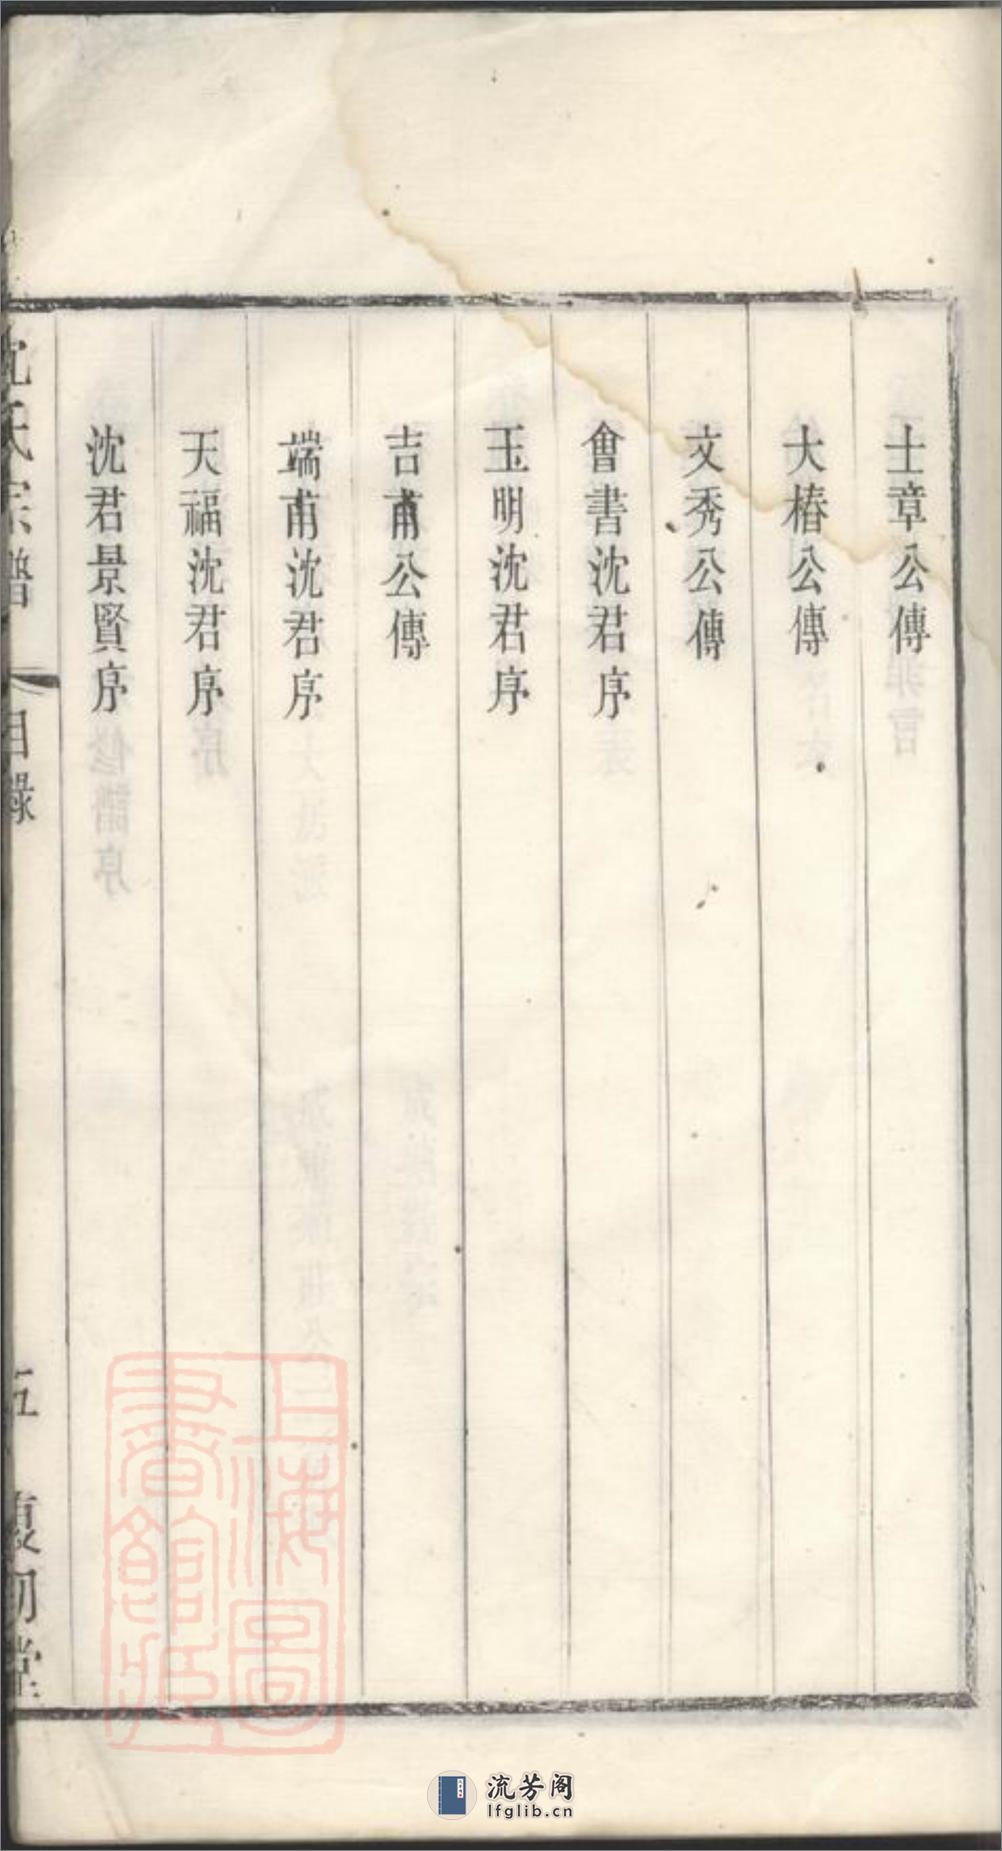 士章公傳
大椿公傳
文秀公傳
會書沈君序
玉明沈君序
吉甫公傳
端甫沈君序
天福沈君序
沈君景賢序
沈氏宗譜
目錄
五
復初堂
上海圖書館藏
流芳阁
lfglib.cn